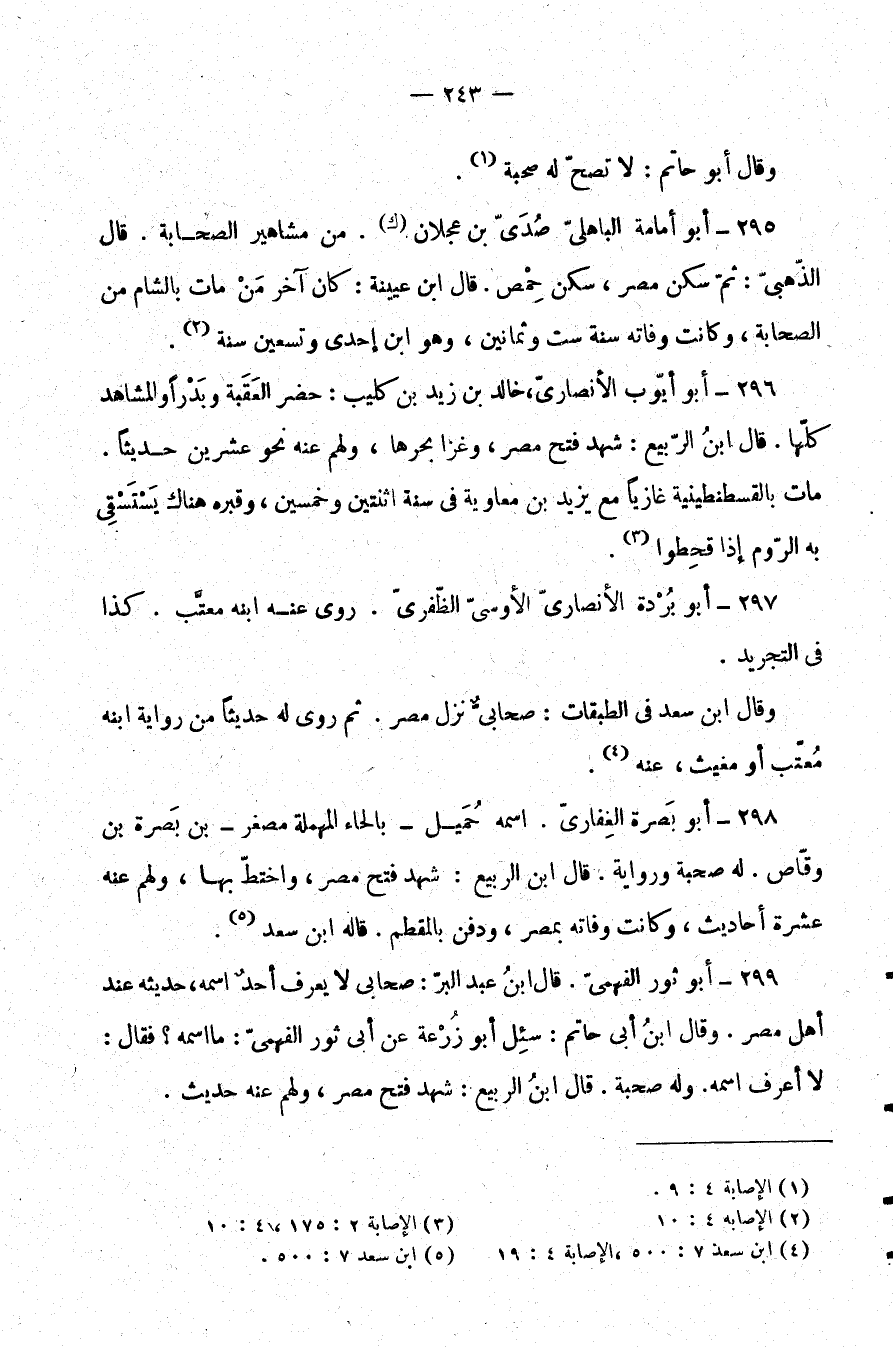 — ٢٤٣ —
وقال أبو حاتم : لا تصحّ له صحبة (١) .
٢٩٥ – أبو أمامة الباهلىّ صُدَىّ بن عجلان (ك) . من مشاهير الصحـابة . قال
الذّهبىّ : ثمّ سكن مصر ، سكن حِمْص . قال ابن عيينة : كان آخر مَنْ مات بالشام من
الصحابة ، وكانت وفاته سنة ست وثمانين ، وهو ابن إحدى وتسعين سنة (٢) .
٢٩٦ – أبو أيّوب الأنصارىّ،خالد بن زيد بن كليب : حضر العَقَبة وبَدْراً والمشاهد
كلّها . قال ابنُ الرّبيع : شهد فتح مصر ، وغزا بحرها ، ولهم عنه نحو عشرين حـديثاً .
مات بالقسطنطينية غازياً مع يزيد بن معاوية فى سنة اثنتين وخمسين ، وقبره هناك يَسْتَسْقِى
به الرّوم إذا قحِطوا (٣) .
٢٩٧ – أبو بُرْدة الأنصارىّ الأوسىّ الظّفرىّ . روى عنـه ابنه معتَّب . كذا
فى التجريد .
وقال ابن سعد فى الطبقات : صحابىٌّ نزل مصر . ثم روى له حديثاً من رواية ابنه
مُعتّب أو مغيث ، عنه (٤) .
٢٩٨ – أبو بَصرة الغِفارىّ . اسمه حُمَيـل – بالحاء المهملة مصغر – بن بَصرة بن
وقّاص . له صحبة ورواية . قال ابن الربيع : شهد فتح مصر ، واختطّ بهـا ، ولهم عنه
عشرة أحاديث ، وكانت وفاته بمصر ، ودفن بالمقطم . قاله ابن سعد (٥) .
٢٩٩ – أبو ثور الفهمىّ . قال ابنُ عبد البرّ : صحابى لا يعرف أحدٌ اسمه،حديثه عند
أهل مصر . وقال ابنُ أبى حاتم : سئِل أبو زُرْعة عن أبى ثور الفهمىّ : مااسمه ؟ فقال :
لا أعرف اسمه. وله صحبة . قال ابنُ الربيع : شهد فتح مصر ، ولهم عنه حديث .
(١) الإصابة ٤ : ٩ .
(٢) الإصابه ٤ : ١٠ (٣) الإصابة ٢ : ١٧٥ ، ٤ : ١٠
(٤) ابن سعد ٧ : ٥٠٠ ،الإصابة ٤ : ١٩ (٥) ابن سعد ٧ : ٥٠٠ .